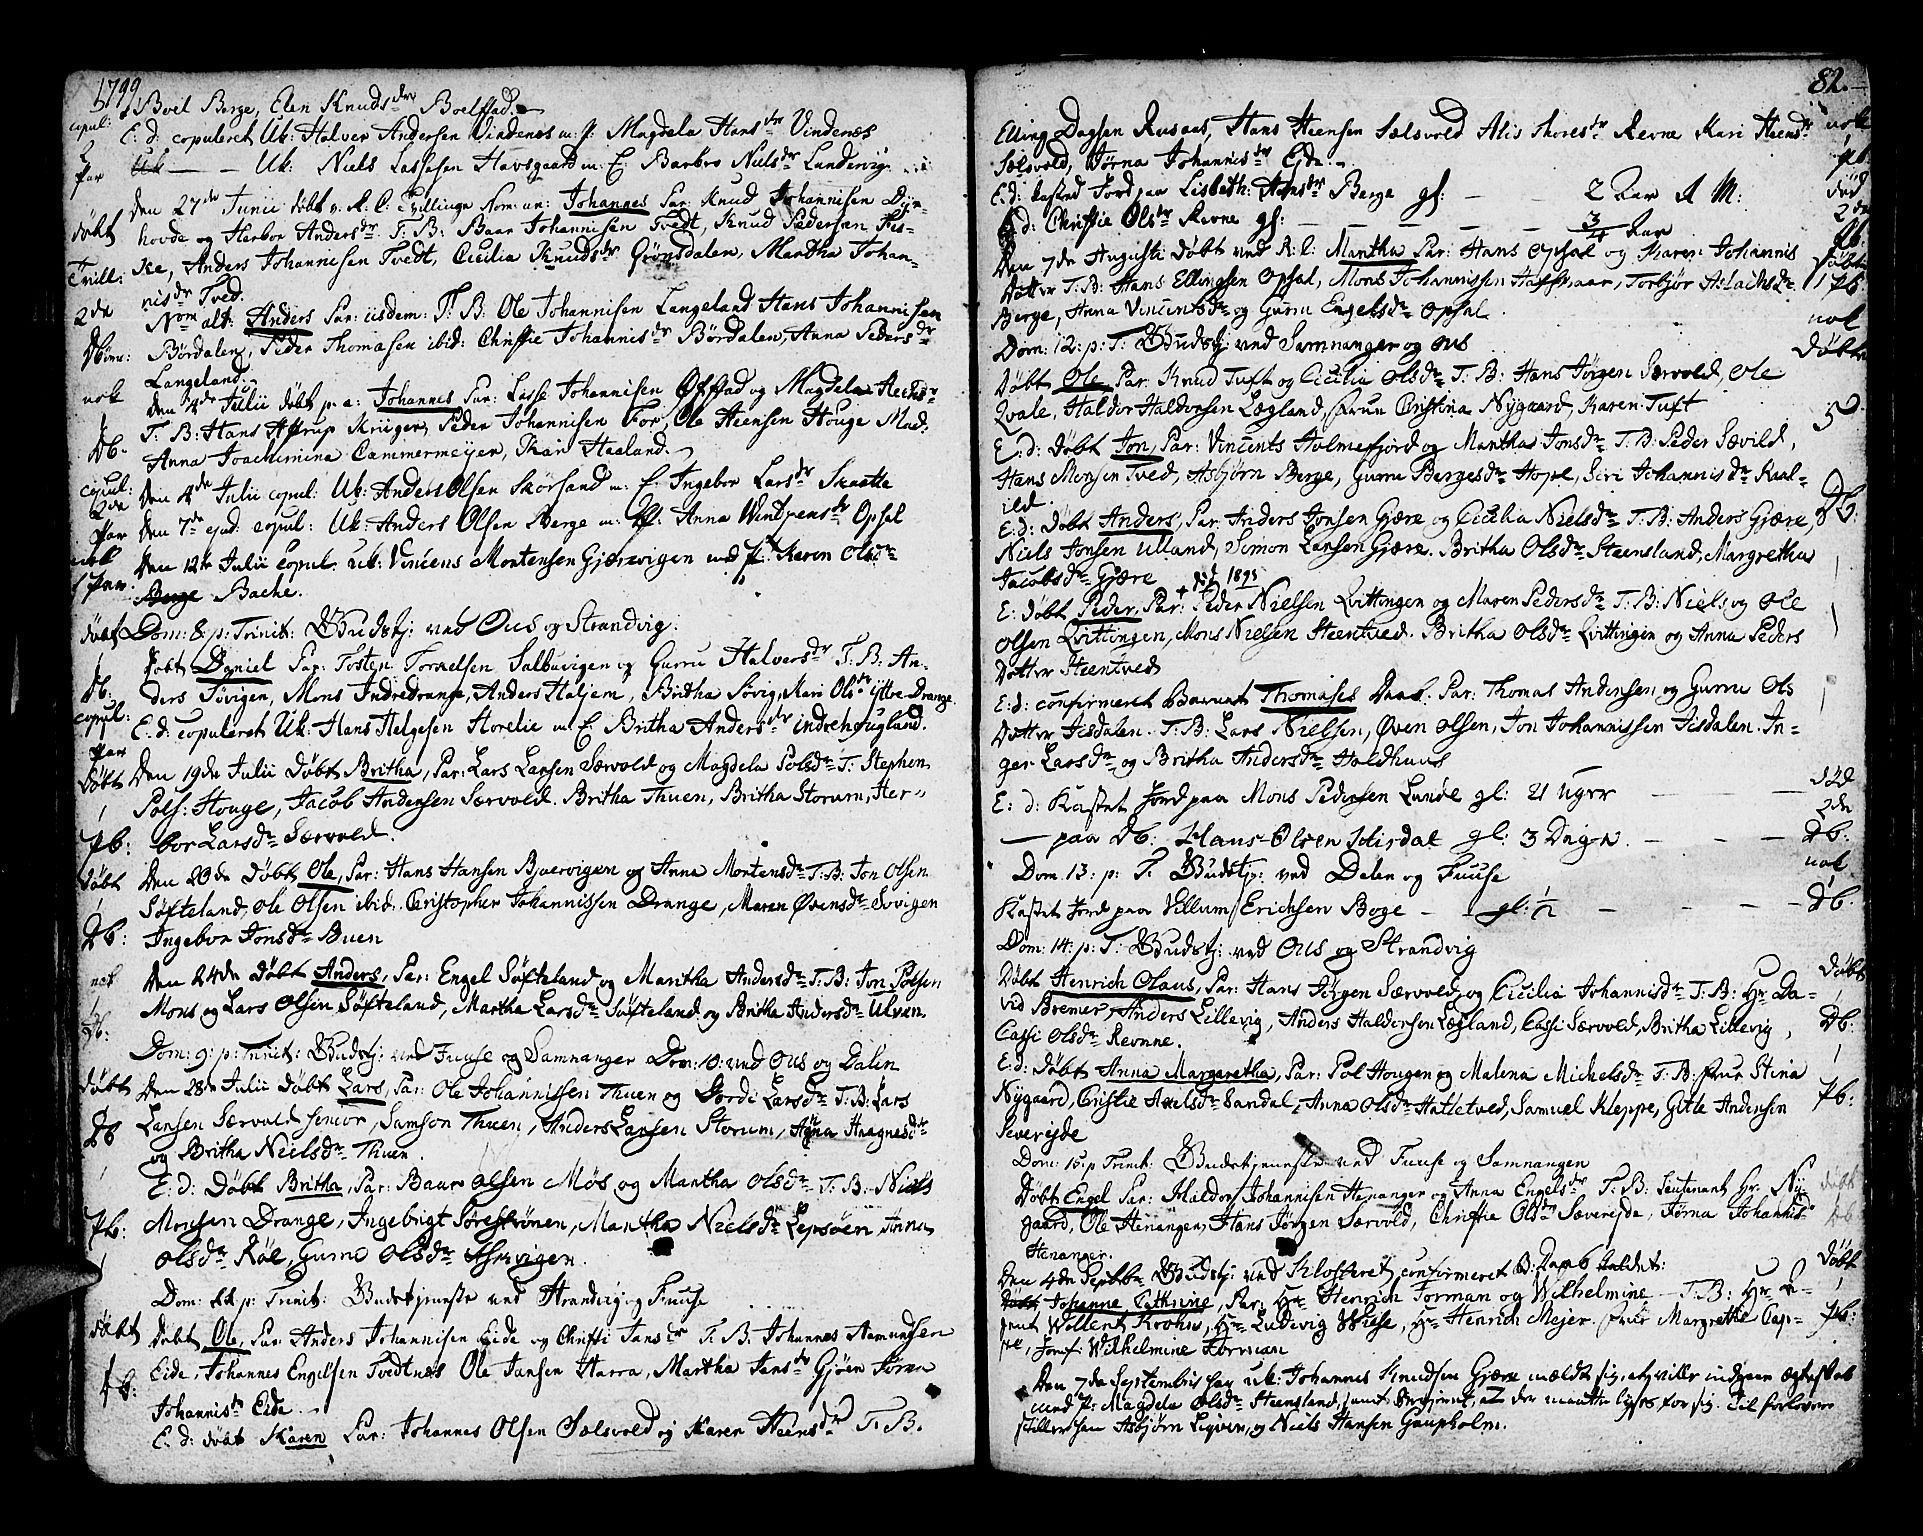 1799
Boel Berge, Elen Knudsdr Boelstad.
copul: E: d: copuleret Uk: Halvor Andersen Vindenes m: P: Magdela Hansdr Vindenes
Par Uk — — Uk: Niels Lassesen Havsgaard m: E: Barbro Nielsdr Lundervig
døbt den 27de Junii døbt Tvillinge Nom: un: Johannes Par: Knud Johannisen
hovde og Herbor Andersdr T: B: Baar Johannisen Tvedt, Knud Pedersen
Tvill: ke, Anders Johannisen Tvedt, Cecilia Knudsdr Grönsdalen, Martha Johan-
nisdr Tved.
2de Nom: alt: Anders Par: iisdem: T: B: Ole Johannisen Langeland Hans Johannisen
Dbörn: Børdalen, Peder Thomasen ibid: Christie Johannisdr Børdalen, Anna Pedersdr
Langeland.
nok den 2de Julii døbt p: a: Johannes Par: Lasse Johannisen Øfstad og Magdela
Db. T: B: Hans Astrup Krüger, Peder Johannisen For, Ole Steensen Houge Mad.
Anna Joachimina Cammermeyer, Kari Haaland.
copul: den 4de Julii copul: Uk: Anders Olsen Skorsand m: E: Ingebor Larsdr Skaatte
2de Par den 7de ejusd: copul: Uk: Anders Olsen Berge m: P: Anna Opsal
nok Den 12te Julii copul: uk: Vincens Mortensen Gjærevigen med P: Karen Olsdr
1 Par. Berge Bache.
døbt Dom: 8: p: Trinit: Gudstj: ved Ous og Strandvig.
Døbt Daniel Par: Tosten Torkelsen Salbuvigen og Gurru Halversdr T: B: An-
Db: ders Søvigen, Mons Indredrange, Anders Haljem, Britha Søvig, Kari Olsdr yttre Drange
copul: E: d: copuleret Uk: Hans Helgesen Storelie m: E: Britha Andersdr indrehougland.
Par
Døbt Den 19de Julii Døbt Britha, Par: Lars Larsen Særvold og Magdela Polsdr T: Stephen
1 Pols: Houge, Jacob Andersen Særvold. Britha Thuen, Britha Storum, Her-
Pb: bor Larsdr Særvold.
Døbt Den 20de Døbt Ole, Par: Hans Hansen Bjuervigen og Anna Mortensdr T: B: Jon Olsen
1 Søfteland, Ole Olsen ibid. Christopher Johannissen Drange, Maren Øvensdr Søvigen
Db: Ingebor Jonsdr Buen
nok Den 24de Døbt Anders, Par: Engel Søfteland og Maritha Andersdr T: B: Jon Polsen
1 Mons og Lars Olsen Søfteland, Martha Larsdr Søfteland og Britha Andersdr Ulven
Db:
Dom: 9: p: Trinit: Gudstj: ved Fuuse og Samnanger Dom: 10: ved Ous og Dalen
Døbt Den 28de Julii Døbt Lars, Par: Ole Johannissen Thuen og Gjordi Larsdr T: B: Lars
Db Larsen Særvold senior, Samson Thuen, Anders Larsen Storum, Anna Haagnesdr
1 og Britha Nielsdr Thuen.
E: d: Døbt Britha, Par: Baar Olsen Møs og Martha Olsdr T: B: Niels
Pb: Monsen Drange, Ingebrigt Sørestrønen, Martha Nielsdr Lepsøen, Anna
1 Olsdr Røe, Gurru Olsdr
Dom: 11 p: Trinit: Gudstjeneste ved Strandvig og Fuuse
døbt Døbt Ole, Par: Anders Johannisen Eide og Christi Jansdr T: B: Johannes Aamundsen
Eide, Johannes Engelsen Tvedtnes Ole Jansen Harra, Martha Jansdr Gjøen Sørna
Pb: Johannisdr Eide.
E: d: døbt Karen Par: Johannes Olsen Sælsvold og Karen Steensdr T: B:
82.
Elling Dagsen Russaas, Hans Steensen Sælsvold Alis Revne Kari Steensdr nok
Sælsvold, Sørna Johannisdr Eide. 1 Pb
E: d: kasted Jord paa Lisbeth: Hansdr Berge gl: — — 2 Aar A M: død
E: d: Christie Olsdr Revne gl: — — — — 3/4 Aar 2de Pb:
Den 7de Augusti Døbt ved R: C: Martha Par: Hans Opsal og Karen Johannis Døbt
Datter T: B: Hans Ellingsen Opsal, Mons Johannissen Halfhaar, Torbjør Aslachsdr 1 Pb:
Berge, Anna Vincentsdr og Gurru Engelsdr Opsal.
Dom: 12: p: T: Gudstj: ved Samnanger og Ous nok
Døbt Ole Par: Knud Tuft og Cicilia Olsdr T: B: Hans Jørgen Særvold, Ole Døbt
Qvale, Haldor Haldorsen Lægland, Frue Christina Nÿgaard, Karen Tuft 5
E: d: Døbt Jon, Par: Vincents Holmefjord og Martha Jonsdr T: B: Peder Sævild,
Hans Monsen Tved, Asbjørn Berge, Gurru Bergesdr Hope, Siri Johannisdr Raal-
ild Db:
E: d: Døbt Anders, Par: Anders Jonsen Gjære og Cicilia Nielsdr T: B: Anders Gjære,
Niels Jonsen Ulland, Simon Larsen Gjære. Britha Olsdr Steensland, Margretha
Jacobsdr Gjære + død 1895
E: Døbt Peder, Par: Peder Nielsen Qvittingen og Maren Pedersdr T: B: Niels, og Ole
Olsen Qvittingen, Mons Nielsen Steentved. Britha Olsdr Qvittingen og Anna Peders
Datter Steentved
E: d: confirmeret Barnet Thomases Daab. Par: Thomas Andersen og Gurru Ols
Datter Jisdalen. T: B: Lars Nielsen, Øven Olsen, Jon Johannissen Jisdalen. In-
ger Larsdr og Britha Andersdr Holdhuus
E: d: Kastet Jord paa Mons Pedersen Lunde gl: 21 uger — — død
— paa Db: Hans Olsen Hisdal gl: 3 Dage. — — — 2de Db:
Dom. 13: p: T. Gudstj: ved Dalen og Fuuse nok
Kastet Jord paa Villum Erichsen Boge — gl: 1/2 — — — Db:
Dom: 14: p: T: Gudstj: ved Ous og Strandvig
Døbt Henrich Olaus, Par: Hans Jørgen Særvold, og Cicilia Johannisdr T: B: Hr Da- Døbt
vid Bremer, Anders Lillevig, Anders Haldorsen Lægland, Cassi Særvold, Britha Lillevig, 1 Db:
Cassi Olsdr Revnne.
E: d: Døbt Anna Margaretha, Par: Pol Hougen og Malena Michelsdr T: B: Frue Stina 1
Nÿgaard, Cristie Axelsdr Sandal, Anna Olsdr Hatletved, Samuel Kleppe, Gitle Andersen Pb:
Severejde
Dom: 15: p Trinit: Gudstjeneste ved Fuuse og Samnanger
Døbt Engel Par: Haldor Johannisen Henanger og Anna Engelsdr T: B: Lieutenant Hr: Ny- døbt
gaard, Ole Henanger, Hans Jørgen Særvold, Christie Olsdr Særvejde, Sørna Johannisdr Db
Henanger.
Den 4de Septbr Gudstj: ved Klosteret confirmeret B: Daab kaldet: Døbt
Døbt Johanne Cathrine, Par: Hr Henrich Forman og Wilhelmine — T: B: Hr A- 1
Willert Krohn, Hr Ludevig Wiese, Hr Henrich Mejer. Frue Margrethe Cap- Pb:
pe, Jomf: Wilhelmine Forman
Den 7de Septembris haver uk: Johannes Knudsen Gjære meldt sig, at ville indgaae Ægteskab
med P: Magdela Olsdr Steensland, samt begjeret, at der maatte lyses for sig. Til forlovere
stillet han Asbjørn Ligven, og Niels Hansen Gaupholm.